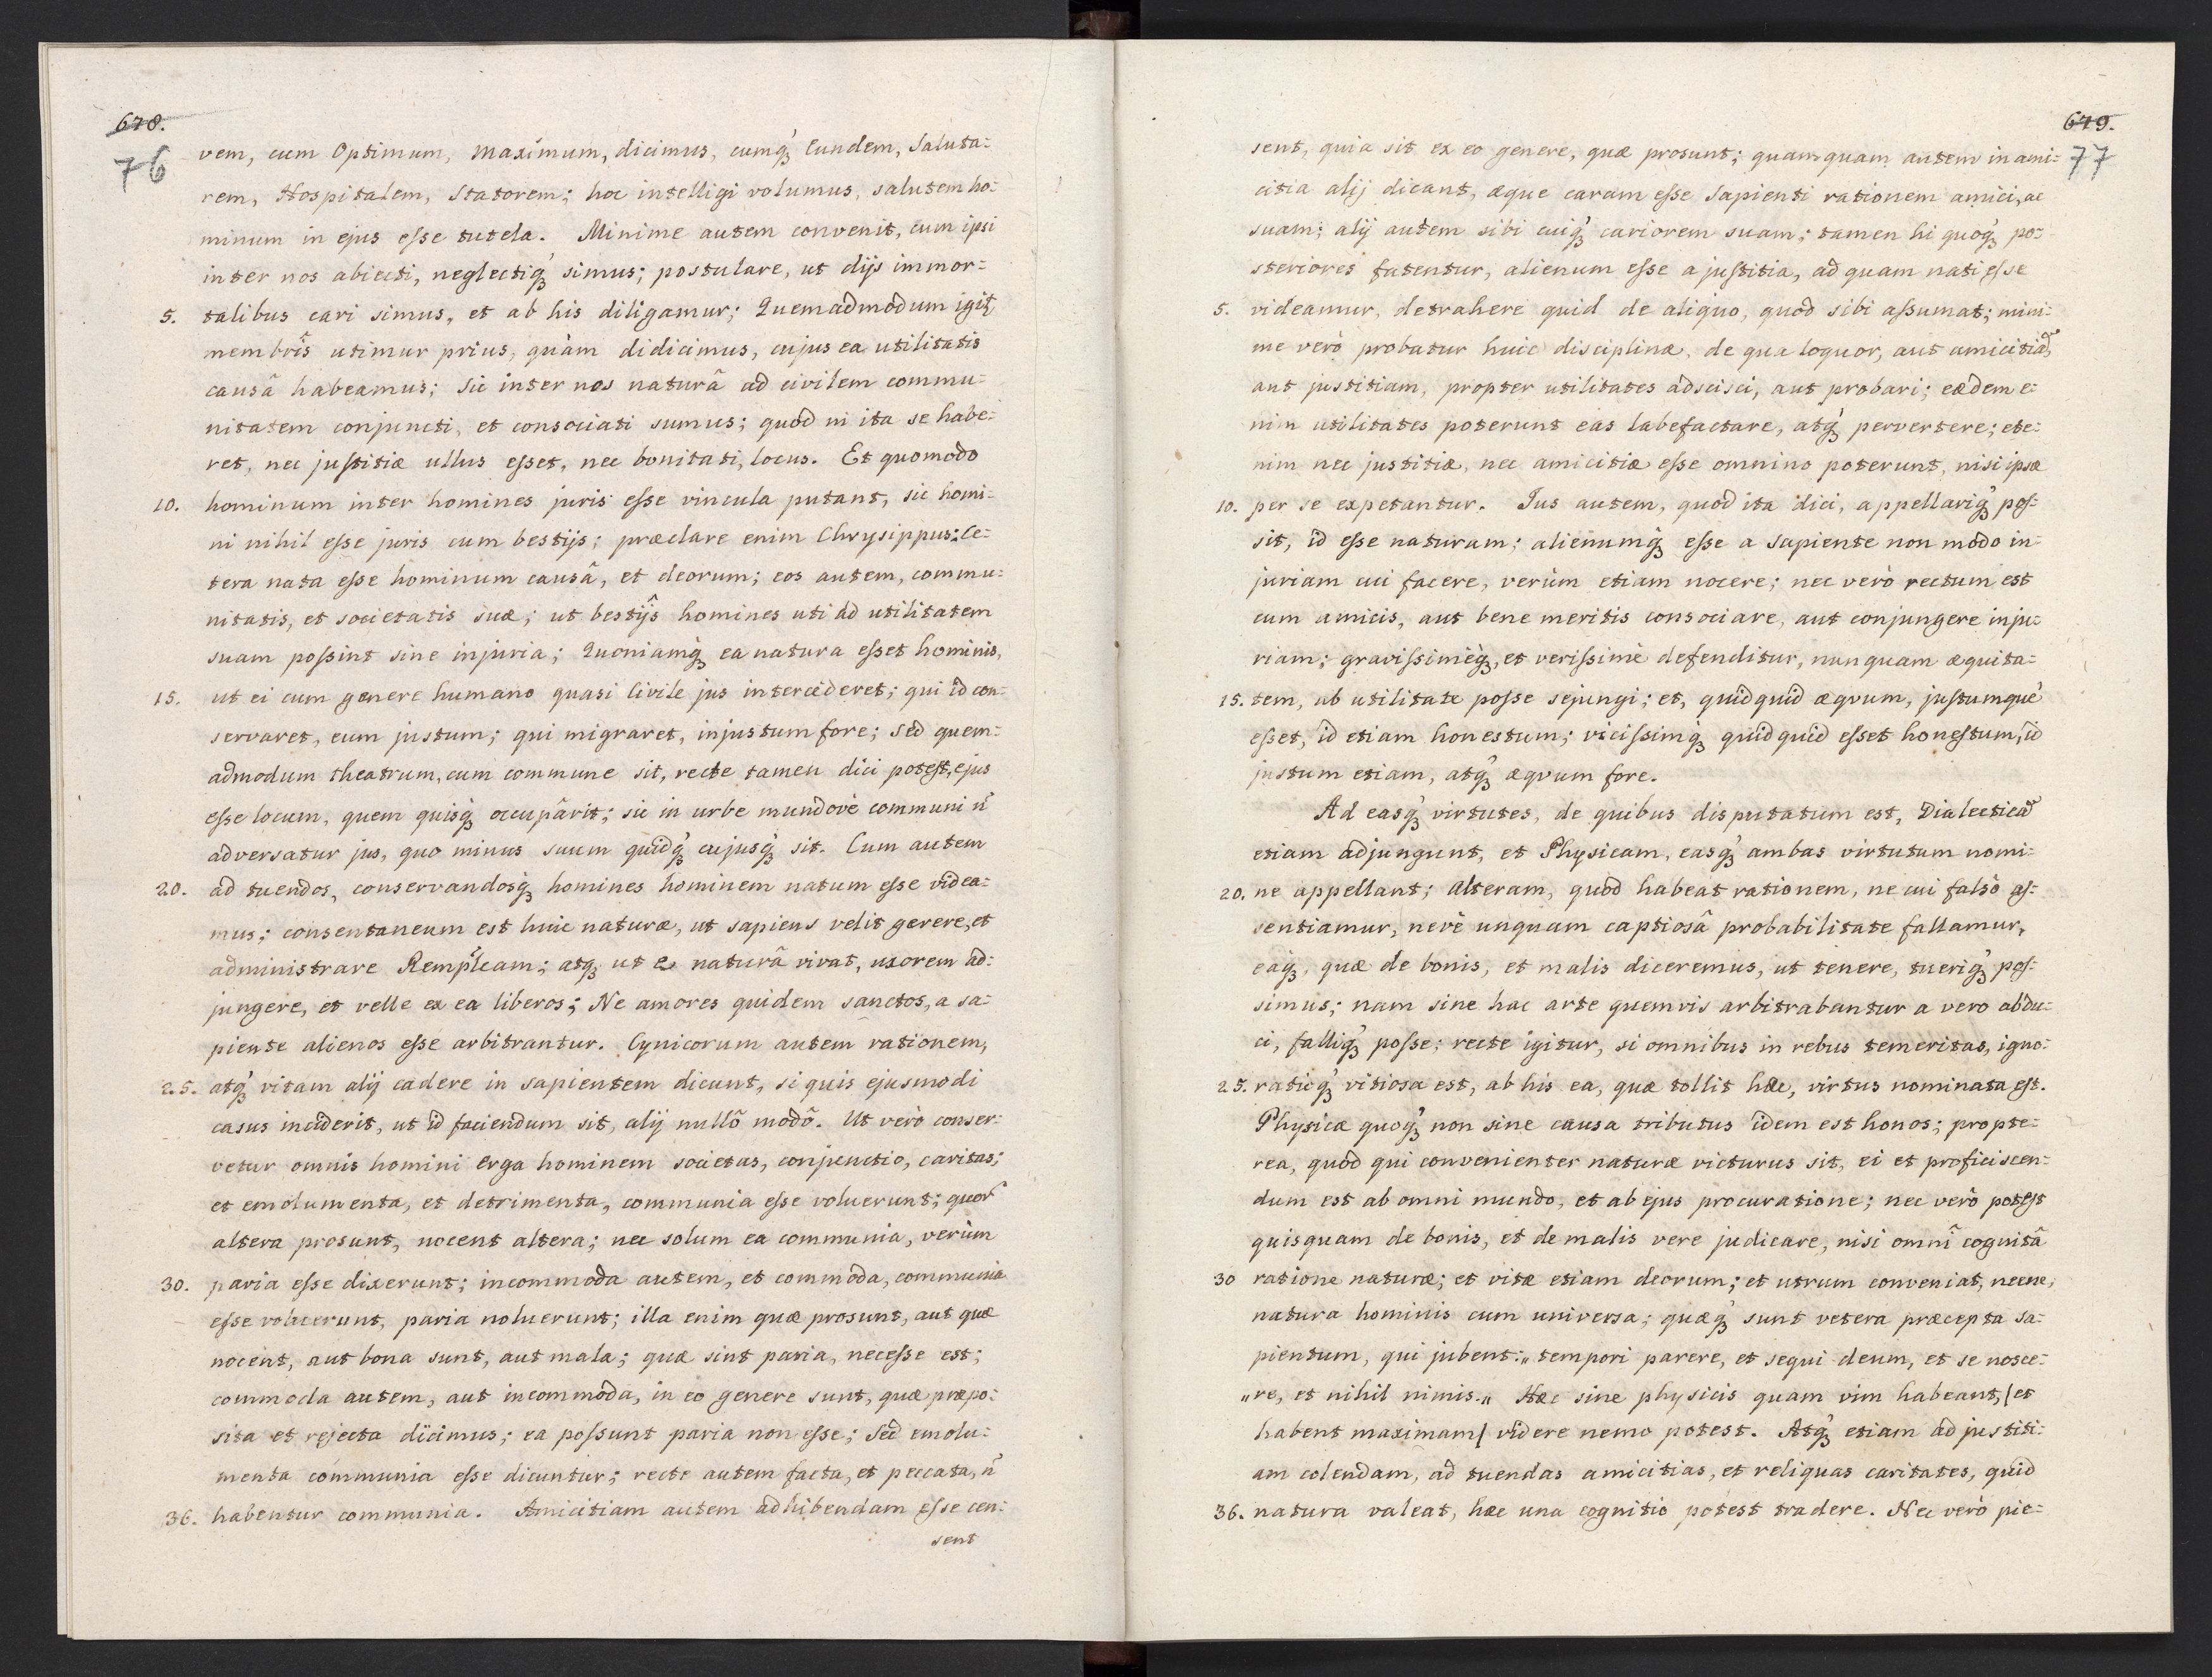 678.
76
vem, cum Optimum, Maximum, dicimus, cumq́ꝫ Eundem, Saluta:
rem, Hospitalem, Statorem; hoc intelligi volumus, salutem ho:
minum in ejus eſse tutela. Minime autem convenit, cum ipsi
inter nos abiecti, neglectiq́ꝫ simus; postulare, ut dijs immor:
5. talibus cari simus, et ab his diligamur; Quemadmodum igit̃
membrîs utimur prius, quàm didicimus, cujus ea utilitatis
causâ habeamus; sic inter nos naturâ ad civilem commu:
nitatem conjuncti, et consociati sumus; quod ni ita se habe:
ret, nec juſtitiæ ullus eſset, nec bonitati, locus. Et quomodo
10. hominum inter homines juris eſse vincula putant, sic homi:
ni nihil eſse juris cum bestijs; præclare enim Chrysippus: Ce:
tera nata eſse hominum causâ, et deorum; eos autem, commu:
nitatis, et societatis suæ; ut bestijs homines uti ad utilitatem
suam poſsint sine injuria; Quoniamq́ꝫ ea natura eſset hominis,
15. ut ei cum genere humano quasi Civile jus intercederet; qui id con:
servaret, eum justum; qui migraret, injustum fore; sed quem:
admodum theatrum, cum commune sit, recte tamen dici poteſt, ejus
eſse locum, quem quisq́ꝫ occupârit; sic in urbe mundovè communi ñ
adversatur jus, quo minus suum quidq́ꝫ cujusq́ꝫ sit. Cum autem
20. ad tuendos, conservandosq́ꝫ homines hominem natum eſse videa:
mus; consentaneum est huic naturæ, ut sapiens velit gerere, et
administrare Rempl̃eam; atqꝫ ut e naturâ vivat, uxorem ad:
jungere, et velle ex ea liberos; Ne amores quidem sanctos, a sa:
piente alienos eſse arbitrantur. Cynicorum autem rationem,
25. atq́ꝫ vitam alij cadere in sapientem dicunt, si quis ejusmodi
casus inciderit, ut id faciendum sit, alij nullô modô. Ut verò conser:
vetur omnis homini erga hominem societas, conjunctio, caritas;
et emolumenta, et detrimenta, communia eſse voluerunt; quor̃
altera prosunt, nocent altera; nec solum ea communia, verùm
30. paria eſse dixerunt; incommoda autem, et commoda, communia
eſse voluerunt, paria noluerunt; illa enim quæ prosunt, aut quæ
nocent, aut bona sunt, aut mala; quæ sint paria, neceſse est;
commoda autem, aut incommoda, in eo genere sunt, quæ præpo:
sita et rejecta dicimus; ea poſsunt paria non eſse; sed emolu:
menta communia eſse dicuntur; recte autem facta, et peccata, ñ
36. habentur communia. Amicitiam autem adhibendam eſse cen:
sent
679.
77
sent, quia sit ex eo genere, quæ prosunt; quamquam autem in ami:
citia alij dicant, æque caram eſse Sapienti rationem amici, ac
suam; alij autem sibi cuiq́ꝫ cariorem suam; tamen hi quoq́ꝫ po:
steriores fatentur, alienum eſse a juſtitia, ad quam nati eſse
5. videamur, detrahere quid de aliquo, quod sibi aſsumat; mini:
me verò probatur huic disciplinæ, de qua loquor, aut amicitiã,
aut justitiam, propter utilitates adscisci, aut probari; eædem e:
nim utilitates poterunt eas labefactare, atq́ꝫ pervertere; ete:
nim nec justitiæ, nec amicitiæ eſse omnino poterunt, nisi ipsæ
10. per se expetantur. Jus autem, quod ita dici, appellariq́ꝫ poſ:
sit, id eſse naturam; alienumq́ꝫ eſse a Sapiente non modo in:
juriam cui facere, verùm etiam nocere; nec verò rectum est
cum amicis, aut bene meritis consociare, aut conjungere inju:
riam; graviſsimèq́ꝫ, et veriſsimè defenditur, nunquam æquita:
15. tem, ab utilitate poſse sejungi; et, quidquid æqvum, juſtumque
eſset, id etiam honestum; viciſsimq́ꝫ quidquid eſset honeſtum, id
justum etiam, atq́ꝫ æqvum fore.
Ad easq́ꝫ virtutes, de quibus disputatum est, Dialecticã
etiam adjungunt, et Physicam, easq́ꝫ ambas virtutum nomi:
20. ne appellant; Alteram, quod habeat rationem, ne cui falsò aſ:
sentiamur, nevè unquam captiosâ probabilitate fallamur,
eaq́ꝫ, quæ de bonis, et malis diceremus, ut tenere, tueriq́ꝫ poſ:
simus; nam sine hac arte quemvis arbitrabantur a vero abdu:
ci, falliq́ꝫ poſse; recte igitur, si omnibus in rebus temeritas, igno:
25. ratioq́ꝫ vitiosa est, ab his ea, quæ tollit hæc, virtus nominata eſt.
Physicæ quoq́ꝫ non sine causa tributus idem est honos; propte:
rea, quod qui convenienter naturæ victurus sit, ei et proficiscen:
dum est ab omni mundo, et ab ejus procuratione; nec verò poteſt
quisquam de bonis, et de malis vere judicare, nisi omnî cognitâ
30 ratione naturæ; et vitæ etiam deorum; et utrum conveniat, necne,
natura hominis cum universa; quæq́ꝫ sunt vetera præcepta sa:
pientum, qui jubent: „tempori parere, et sequi deum, et se nosce:
„re, et nihil nimis.„ Hæc sine physicis quam vim habeant, (et
habent maximam) videre nemo potest. Atq́ꝫ etiam ad justiti:
am colendam, ad tuendas amicitias, et reliquas caritates, quid
36. natura valeat, hæc una cognitio potest tradere. Nec verò pie: